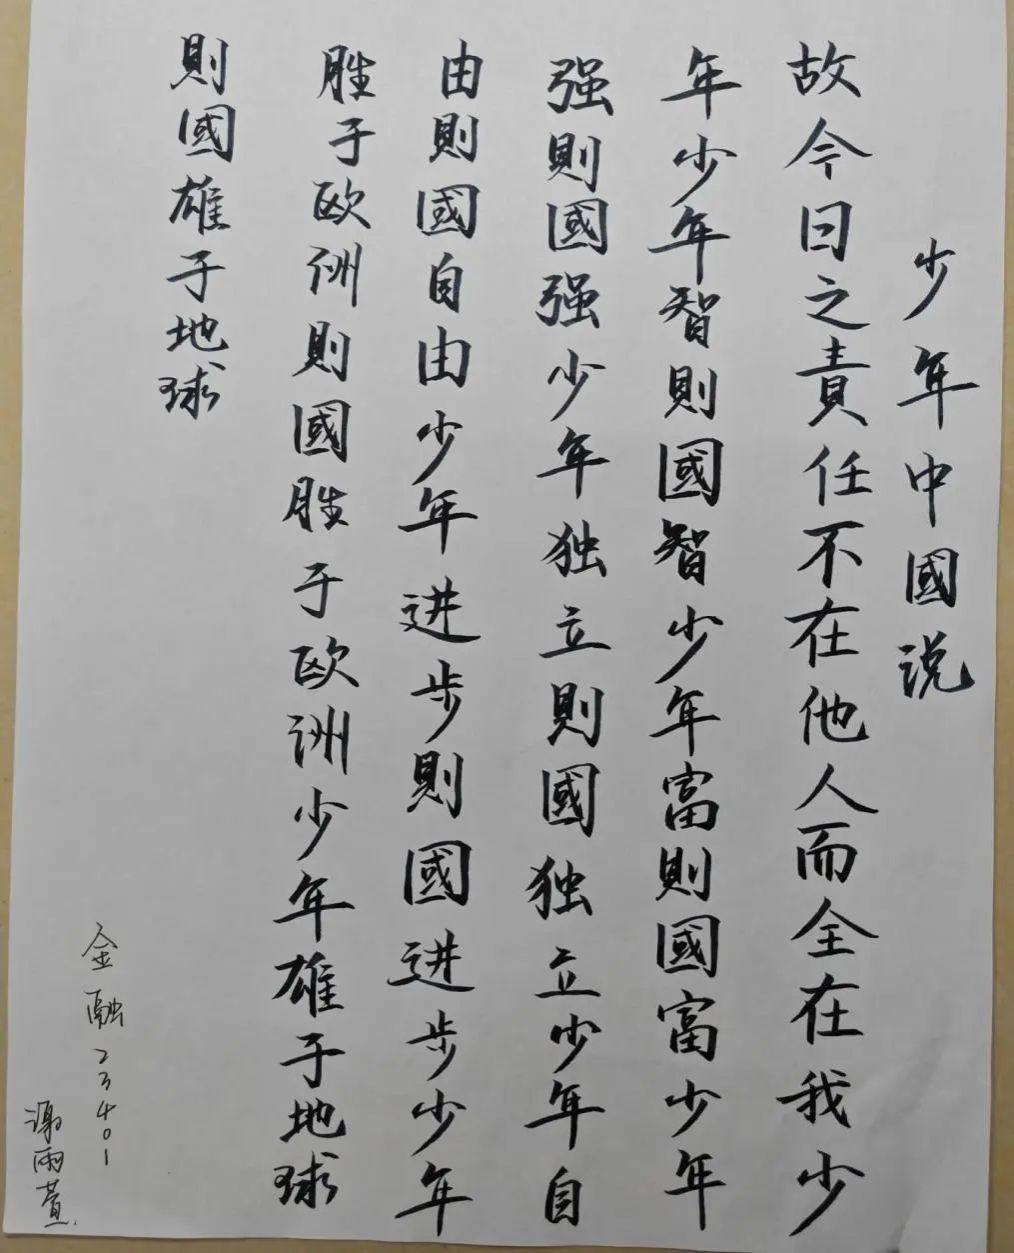 少年中國说
故今日之責任不在他人而全在我少
年少年智則國智少年富則國富少年
强則國强少年独立則國独立少年自
由則國自由少年进步則國进步少年
胜于欧洲則國胜于欧洲少年雄于地球
則國雄于地球
金融23401
谢雨萱